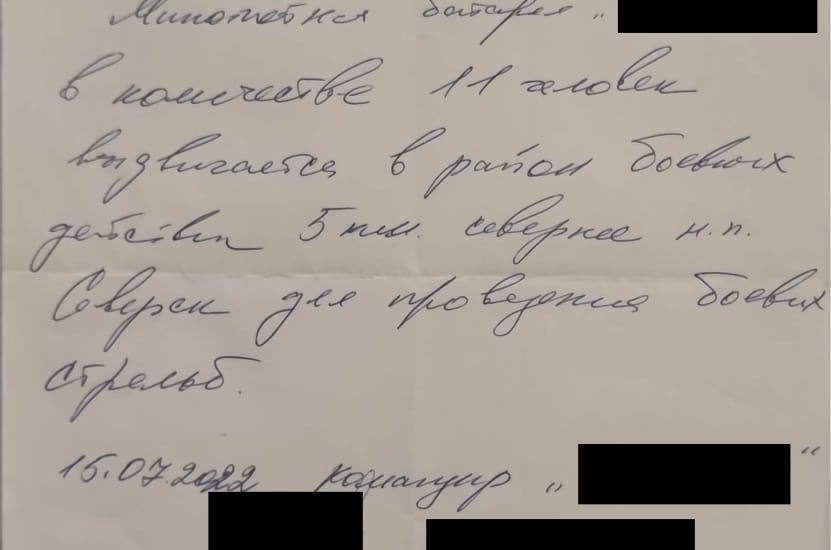 Минометная батарея „
в количестве 11 человек
выдвигается в район боевых
действий 5 км. севернее н.п.
Северск для проведения боевых
стрельб.
15.07.2022 командир „ “